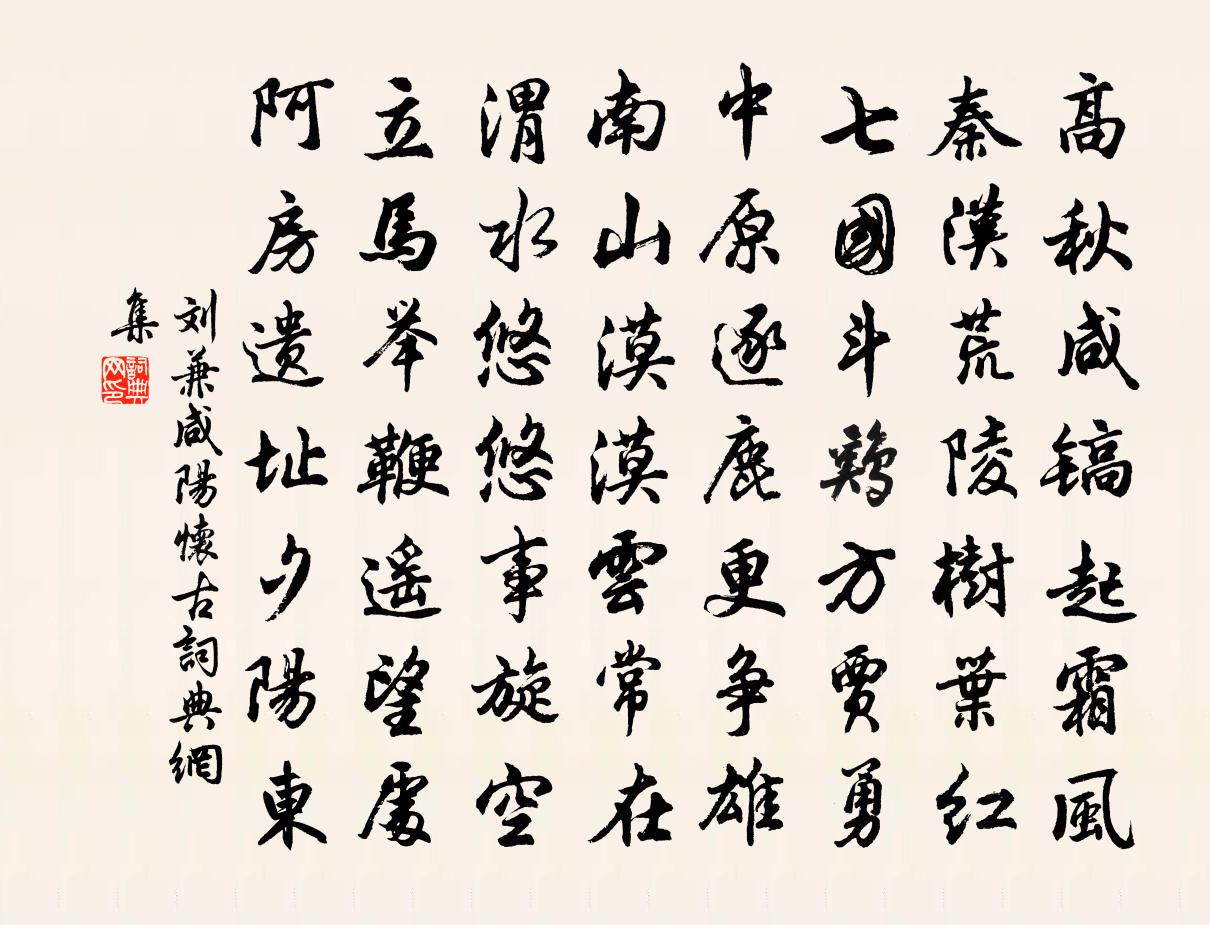 高秋咸镐起霜風
秦漢荒陵樹葉红
七國斗鷄方賈勇
中原逐鹿更争雄
南山漠漠雲常在
渭水悠悠事旋空
立馬举鞭遥望處
阿房遗址夕陽東
刘兼咸陽懷古詞典網
集
詞典
网印